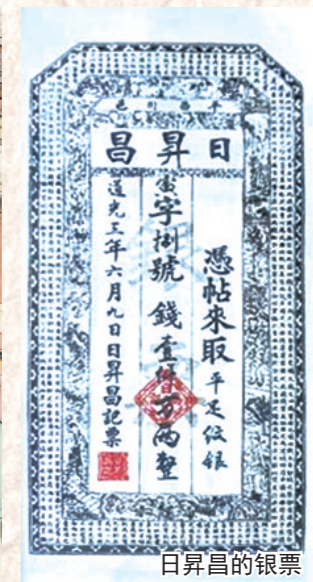 日昇昌
憑帖來取平足紋銀
字掛號 錢壹
兩整
道光三年六月九日日昇昌記票
日昇昌的银票